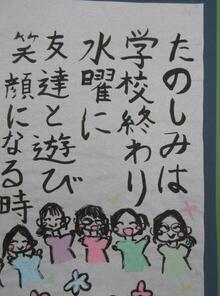 たのしみは
学校終わり
水曜に
友達と遊び
笑顔になる時